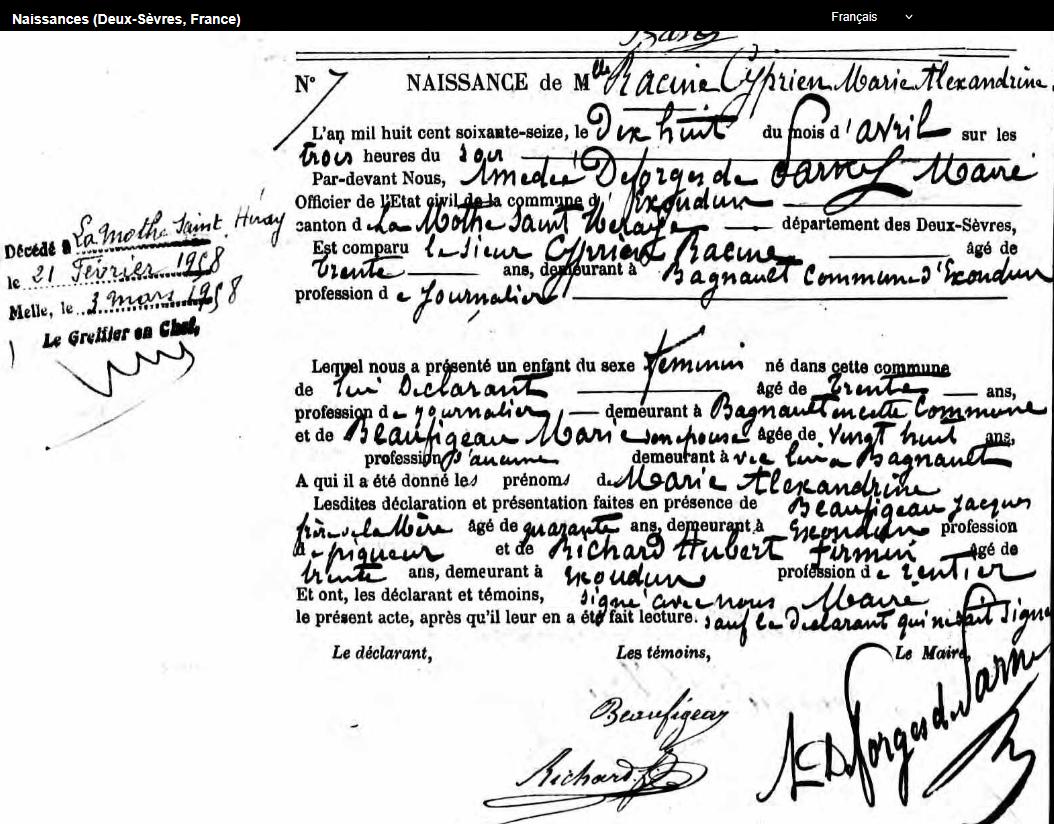 Naissances (Deux-Sèvres, France)
Français
N° 7 NAISSANCE de Mlle Racine Cyprien Marie Alexandrine.
L'an mil huit cent soixante-seize, le Dix huit du mois d'avril sur les
trois heures du soir
Par-devant Nous, Amedée Desforges de Maire
Officier de l'Etat civil de la commune d'Exoudun
canton de La Mothe Saint Heraye département des Deux-Sèvres,
Est comparu le sieur Cyprien Racine âgé de
trente ans, demeurant à Bagnault Commune d'Exoudun
profession de Journalier
Décédé à La Mothe Saint. Héray
le 21 Février 1958
Melle, le 3 mars 1958
Le Greffier en Chef,
Lequel nous a présenté un enfant du sexe feminin né dans cette commune
de lui Déclarant âgé de trente ans,
profession de journalier demeurant à Bagnault en cette Commune
et de Beaufigeau Marie son epouse âgée de vingt huit ans,
profession d'aucune demeurant avec lui a Bagnault
A qui il a été donné les prénoms de Marie Alexandrine
Lesdites déclaration et présentation faites en présence de Beaufigeau Jacques
frère de la Mère âgé de quarante ans, demeurant à Exoudun profession
de piqueur et de Richard Hubert Firmin âgé de
trente ans, demeurant à Exoudun profession de rentier
Et ont, les déclarant et témoins, signé avec nous Maire
le présent acte, après qu'il leur en a été fait lecture. sauf le déclarant qui ne sait signer
Le déclarant, Les témoins, Le Maire,
Beaufigeau
Richard